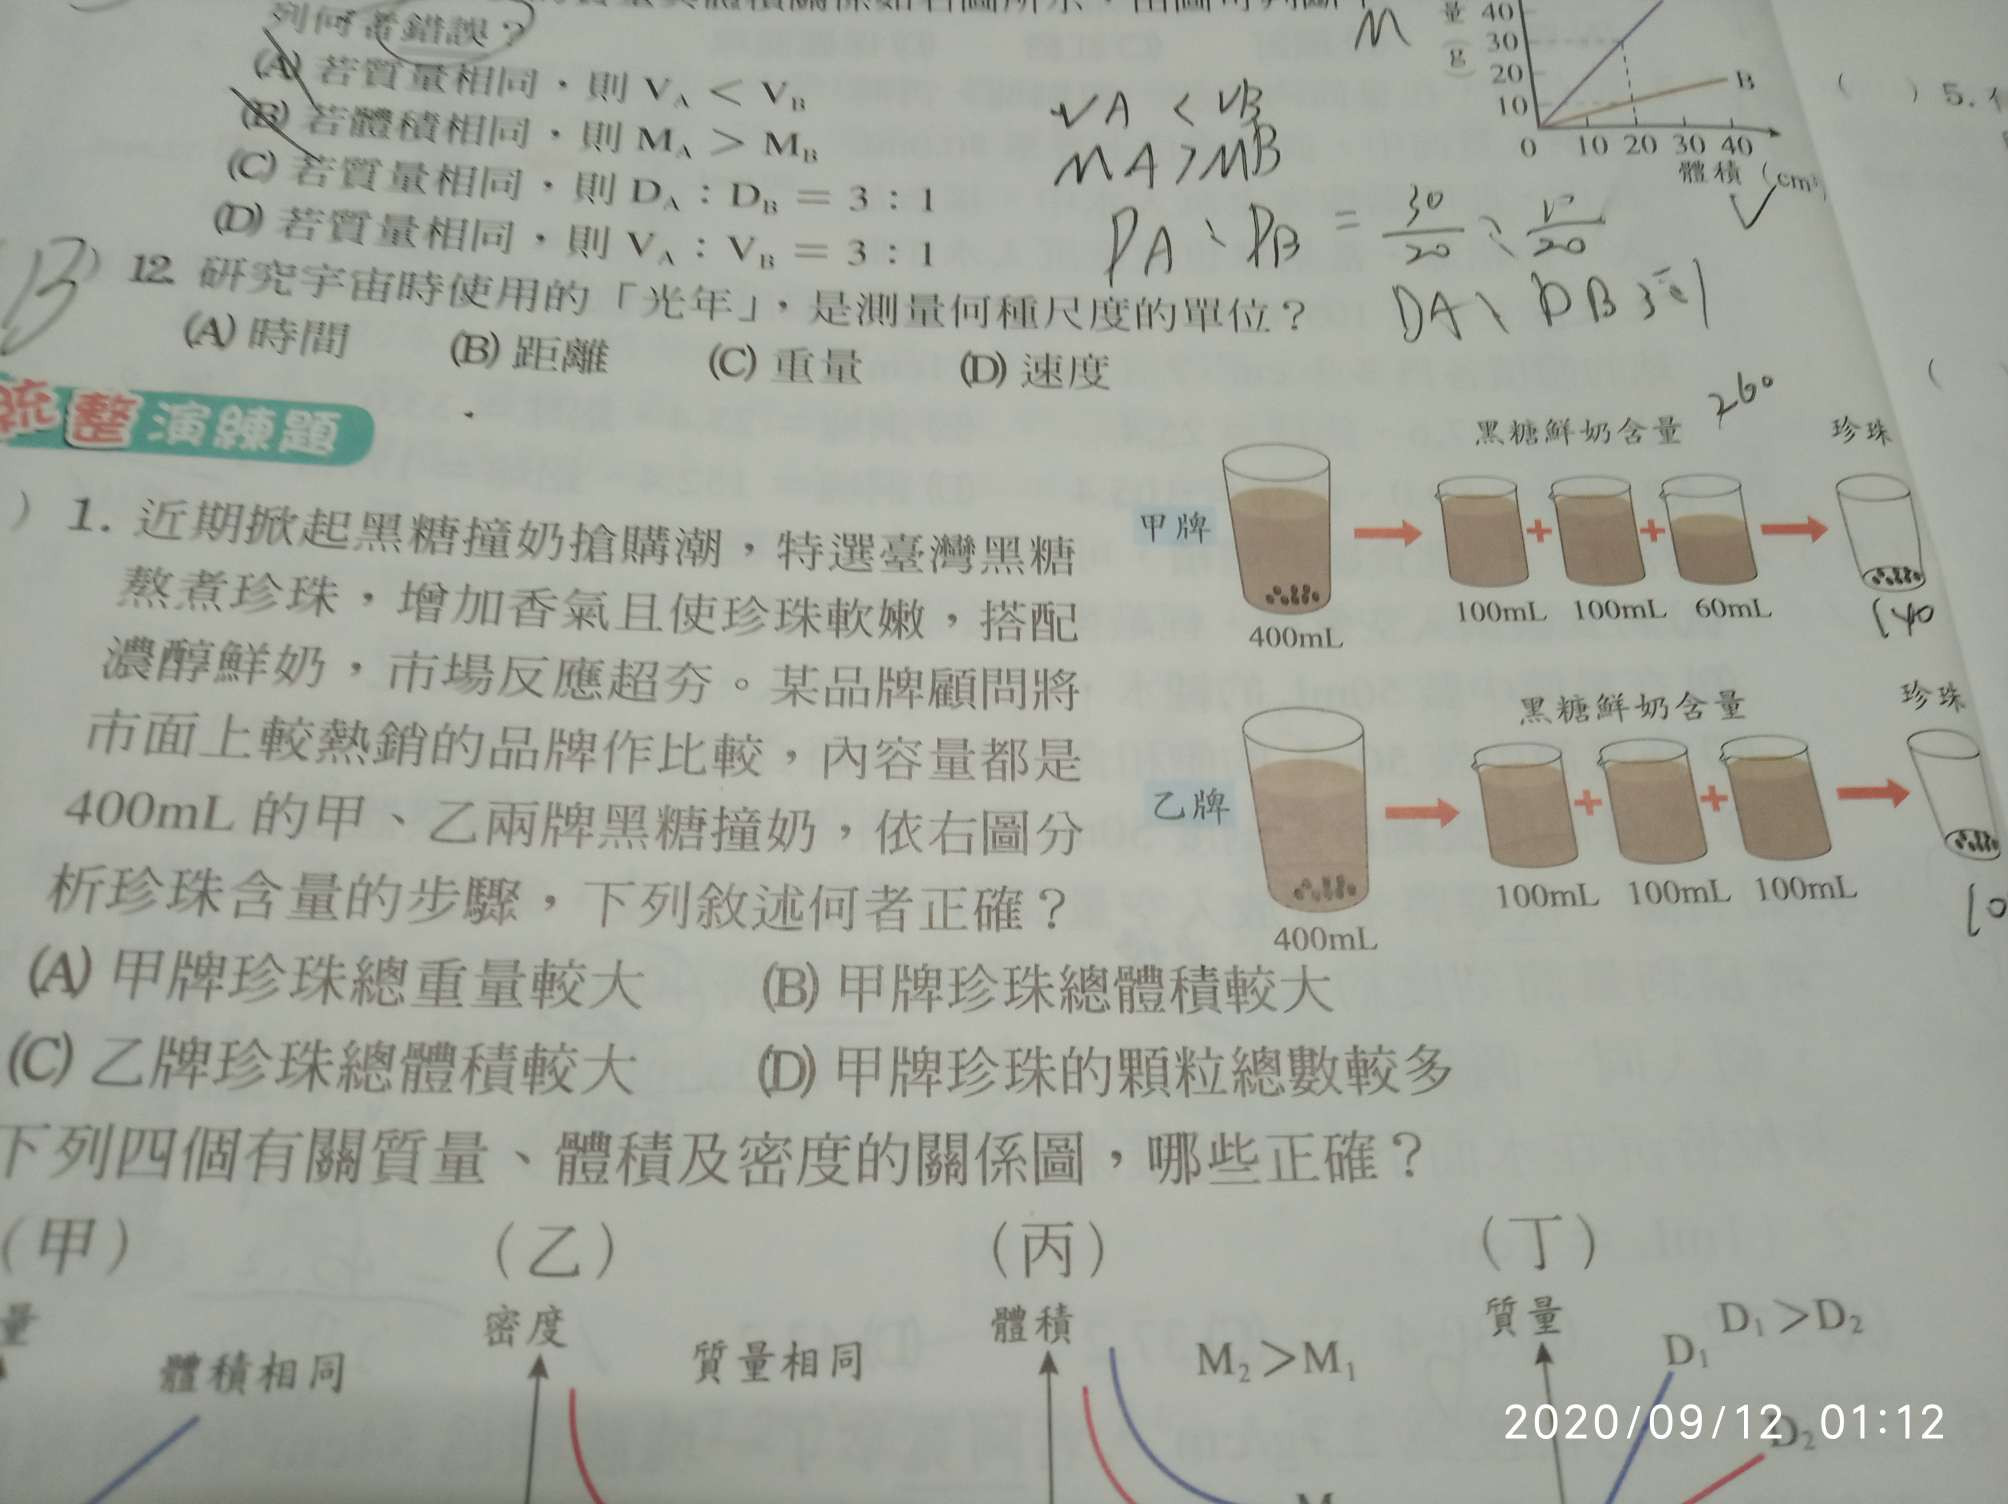 列何者錯誤？
(A) 若質量相同，則 VA < VB
(B) 若體積相同，則 MA > MB
(C) 若質量相同，則 DA：DB = 3：1
(D) 若質量相同，則 VA：VB = 3：1
M
量 40
30
(g)
20
10
0 10 20 30 40
體積 (cm³)
B
VA < VB
MA > MB
DA、DB 3:1
B
12. 研究宇宙時使用的「光年」，是測量何種尺度的單位？
(A) 時間 (B) 距離 (C) 重量 (D) 速度
) 5.
整演練題
) 1. 近期掀起黑糖撞奶搶購潮，特選臺灣黑糖
熬煮珍珠，增加香氣且使珍珠軟嫩，搭配
濃醇鮮奶，市場反應超夯。某品牌顧問將
市面上較熱銷的品牌作比較，內容量都是
400mL 的甲、乙兩牌黑糖撞奶，依右圖分
析珍珠含量的步驟，下列敘述何者正確？
黑糖鮮奶含量 260 珍珠
甲牌
400mL 100mL 100mL 60mL 140
黑糖鮮奶含量 珍珠
乙牌
400mL 100mL 100mL 100mL 10
(A) 甲牌珍珠總重量較大 (B) 甲牌珍珠總體積較大
(C) 乙牌珍珠總體積較大 (D) 甲牌珍珠的顆粒總數較多
下列四個有關質量、體積及密度的關係圖，哪些正確？
（甲） （乙） （丙） （丁）
量 體積相同
密度 質量相同
體積 M2>M1
質量 D1 D1>D2
D2
2020/09/12 01:12